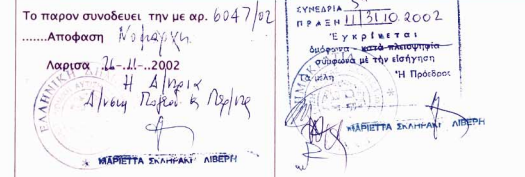 Το παρον συνοδευει την με αρ. 6047/02
.......Αποφαση Νομάρχη
Λαρισα 26-11-..2002
Η Δ/ντρια
ΕΛΛΗΝΙΚΗ
* ΜΑΡΙΕΤΤΑ ΣΚΛΗΡΑΚΙ ΛΙΒΕΡΗ
ΣΥΝΕΔΡΙΑ
ΠΡΑΞΗ 11/31.10.2002
Ἐγκρίνεται
ὁμόφωνα - κατὰ πλειοψηφία
σύμφωνα μὲ τὴν εἰσήγηση
Τὰ μέλη Ἡ Πρόεδρος
* ΜΑΡΙΕΤΤΑ ΣΚΛΗΡΑΚΙ ΛΙΒΕΡΗ